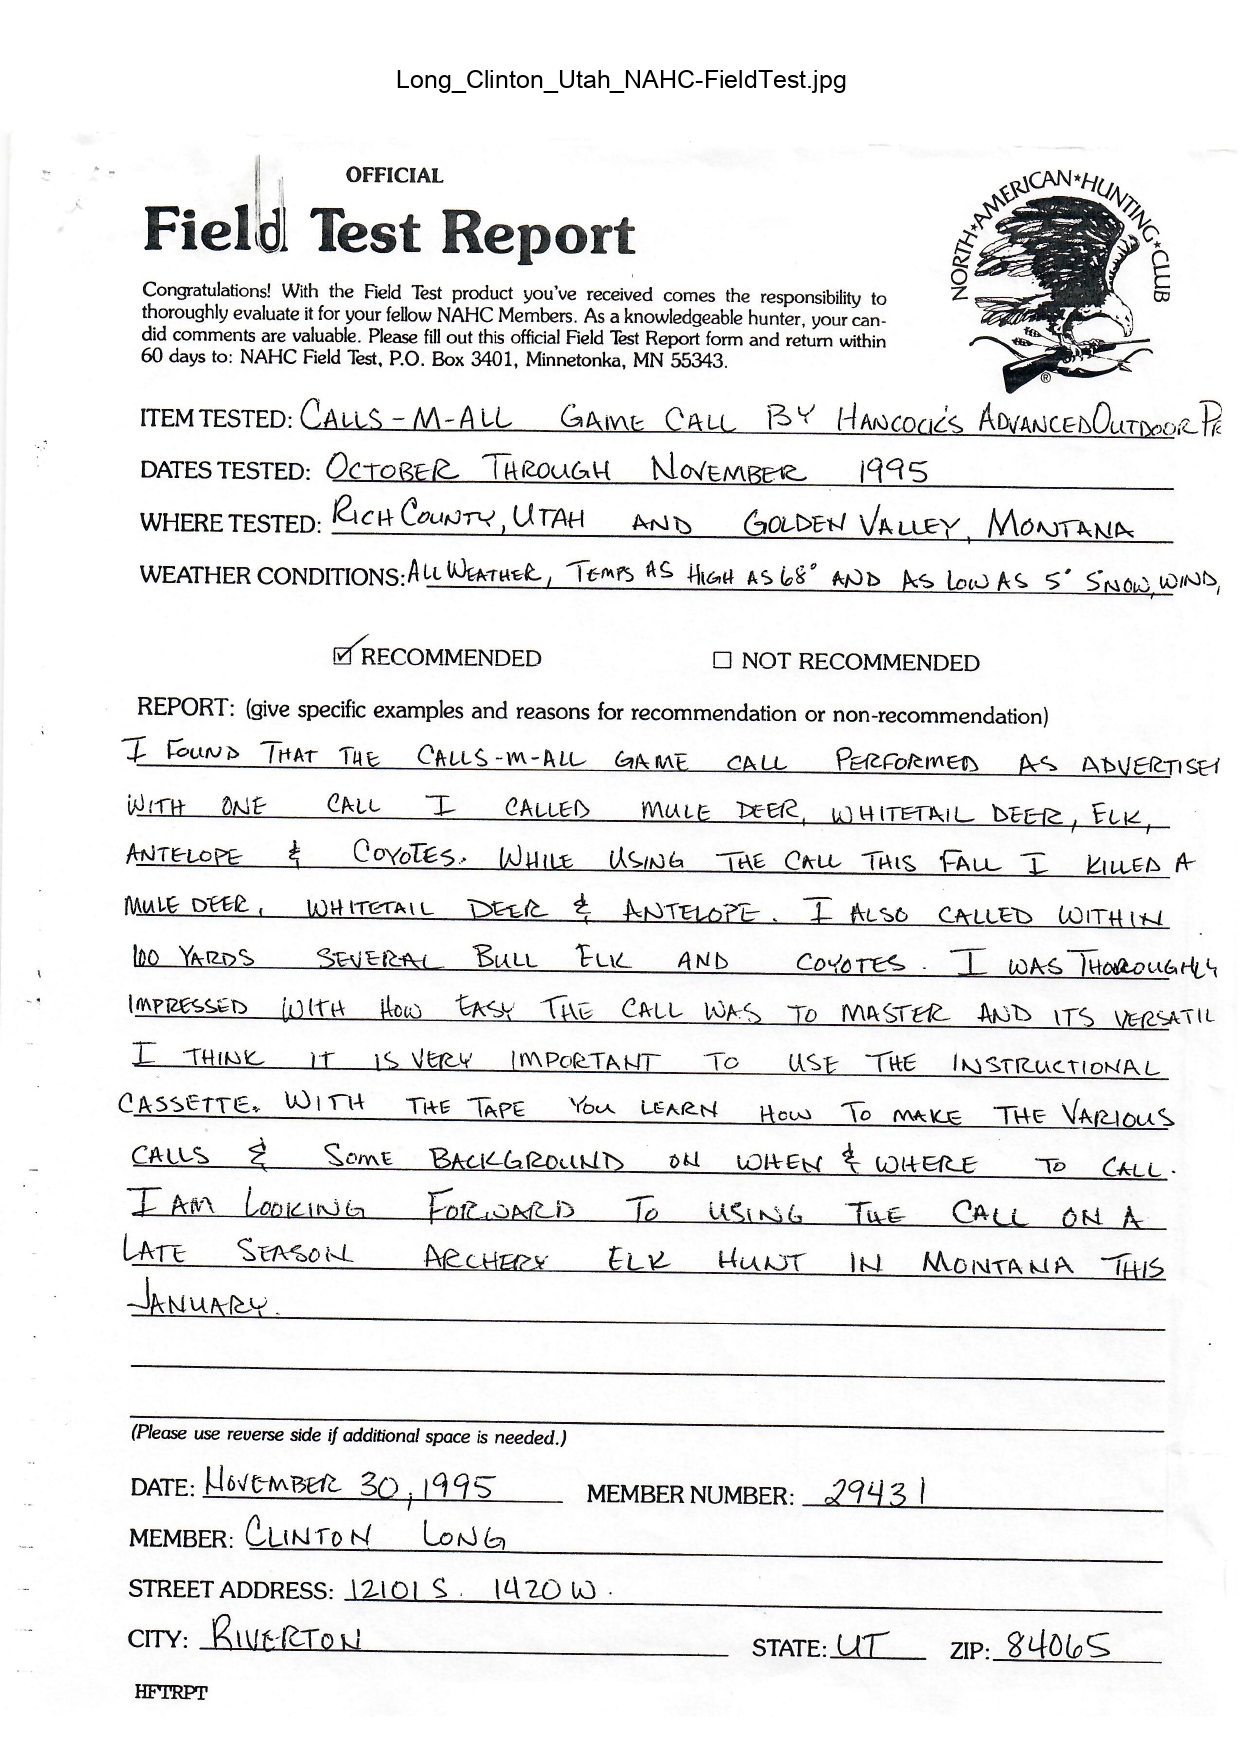 Long_Clinton_Utah_NAHC-FieldTest.jpg
OFFICIAL
Field Test Report
NORTH★AMERICAN★HUNTING★CLUB
®
Congratulations! With the Field Test product you've received comes the responsibility to
thoroughly evaluate it for your fellow NAHC Members. As a knowledgeable hunter, your can-
did comments are valuable. Please fill out this official Field Test Report form and return within
60 days to: NAHC Field Test, P.O. Box 3401, Minnetonka, MN 55343.
ITEM TESTED: CALLS-M-ALL GAME CALL BY HANCOCK'S ADVANCED OUTDOOR PR
DATES TESTED: OCTOBER THROUGH NOVEMBER 1995
WHERE TESTED: RICH COUNTY, UTAH AND GOLDEN VALLEY, MONTANA
WEATHER CONDITIONS: ALL WEATHER, TEMPS AS HIGH AS 68° AND AS LOW AS 5° SNOW, WIND,
☑ RECOMMENDED ☐ NOT RECOMMENDED
REPORT: (give specific examples and reasons for recommendation or non-recommendation)
I FOUND THAT THE CALLS-M-ALL GAME CALL PERFORMED AS ADVERTISE
WITH ONE CALL I CALLED MULE DEER, WHITETAIL DEER, ELK,
ANTELOPE & COYOTES. WHILE USING THE CALL THIS FALL I KILLED A
MULE DEER, WHITETAIL DEER & ANTELOPE. I ALSO CALLED WITHIN
100 YARDS SEVERAL BULL ELK AND COYOTES. I WAS THOROUGHLY
IMPRESSED WITH HOW EASY THE CALL WAS TO MASTER AND ITS VERSATIL
I THINK IT IS VERY IMPORTANT TO USE THE INSTRUCTIONAL
CASSETTE. WITH THE TAPE YOU LEARN HOW TO MAKE THE VARIOUS
CALLS & SOME BACKGROUND ON WHEN & WHERE TO CALL.
I AM LOOKING FORWARD TO USING THE CALL ON A
LATE SEASON ARCHERY ELK HUNT IN MONTANA THIS
JANUARY.
(Please use reverse side if additional space is needed.)
DATE: NOVEMBER 30, 1995 MEMBER NUMBER: 29431
MEMBER: CLINTON LONG
STREET ADDRESS: 12101 S. 1420 W.
CITY: RIVERTON STATE: UT ZIP: 84065
HFTRPT